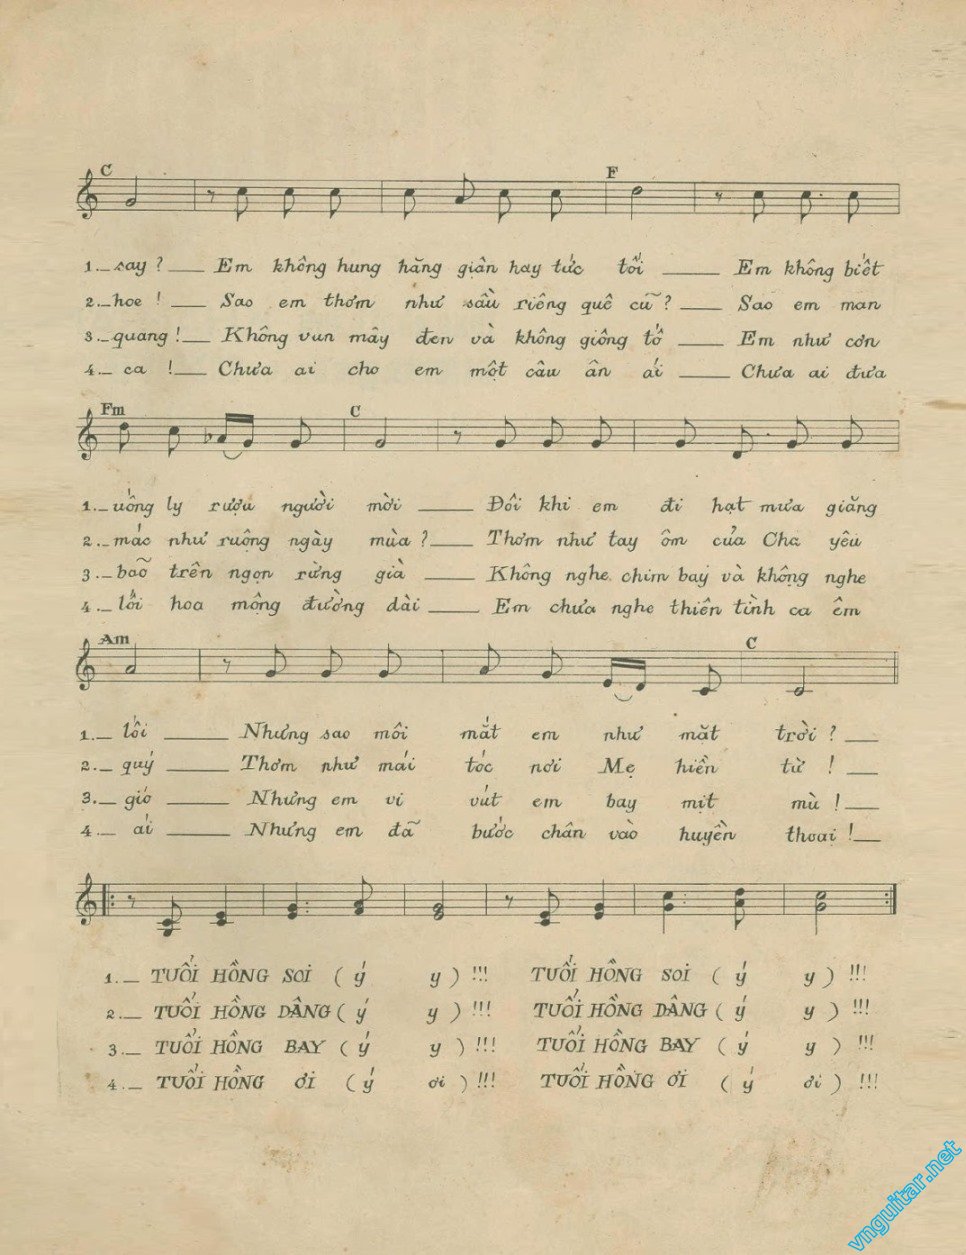 C F
1._ say ? ___ Em không hung hăng giận hay tức tối ___ Em không biết
2._ hoe ! ___ Sao em thơm như sầu riêng quê cũ ? ___ Sao em man
3._ quang ! ___ Không vun mây đen và không giông tố ___ Em như cơn
4._ ca ! ___ Chưa ai cho em một câu ân ái ___ Chưa ai đưa
Fm C
1._ uống ly rượu người mời ___ Đôi khi em đi hạt mưa giăng
2._ mác như ruộng ngày mùa ? ___ Thơm như tay ôm của Cha yêu
3._ bão trên ngọn rừng già ___ Không nghe chim bay và không nghe
4._ lối hoa mộng đường dài ___ Em chưa nghe thiên tình ca êm
Am C
1._ lối ___ Nhưng sao môi mắt em như mặt trời ? ___
2._ quý ___ Thơm như mái tóc nơi Mẹ hiền từ ! ___
3._ gió ___ Nhưng em vi vút em bay mịt mù ! ___
4._ ái ___ Nhưng em đã bước chân vào huyền thoại ! ___
1._ TUỔI HỒNG SOI ( ý y ) !!! TUỔI HỒNG SOI ( ý y ) !!!
2._ TUỔI HỒNG DÂNG ( ý y ) !!! TUỔI HỒNG DÂNG ( ý y ) !!!
3._ TUỔI HỒNG BAY ( ý y ) !!! TUỔI HỒNG BAY ( ý y ) !!!
4._ TUỔI HỒNG ƠI ( ý ơi ) !!! TUỔI HỒNG ƠI ( ý ơi ) !!!
vnguitar.net